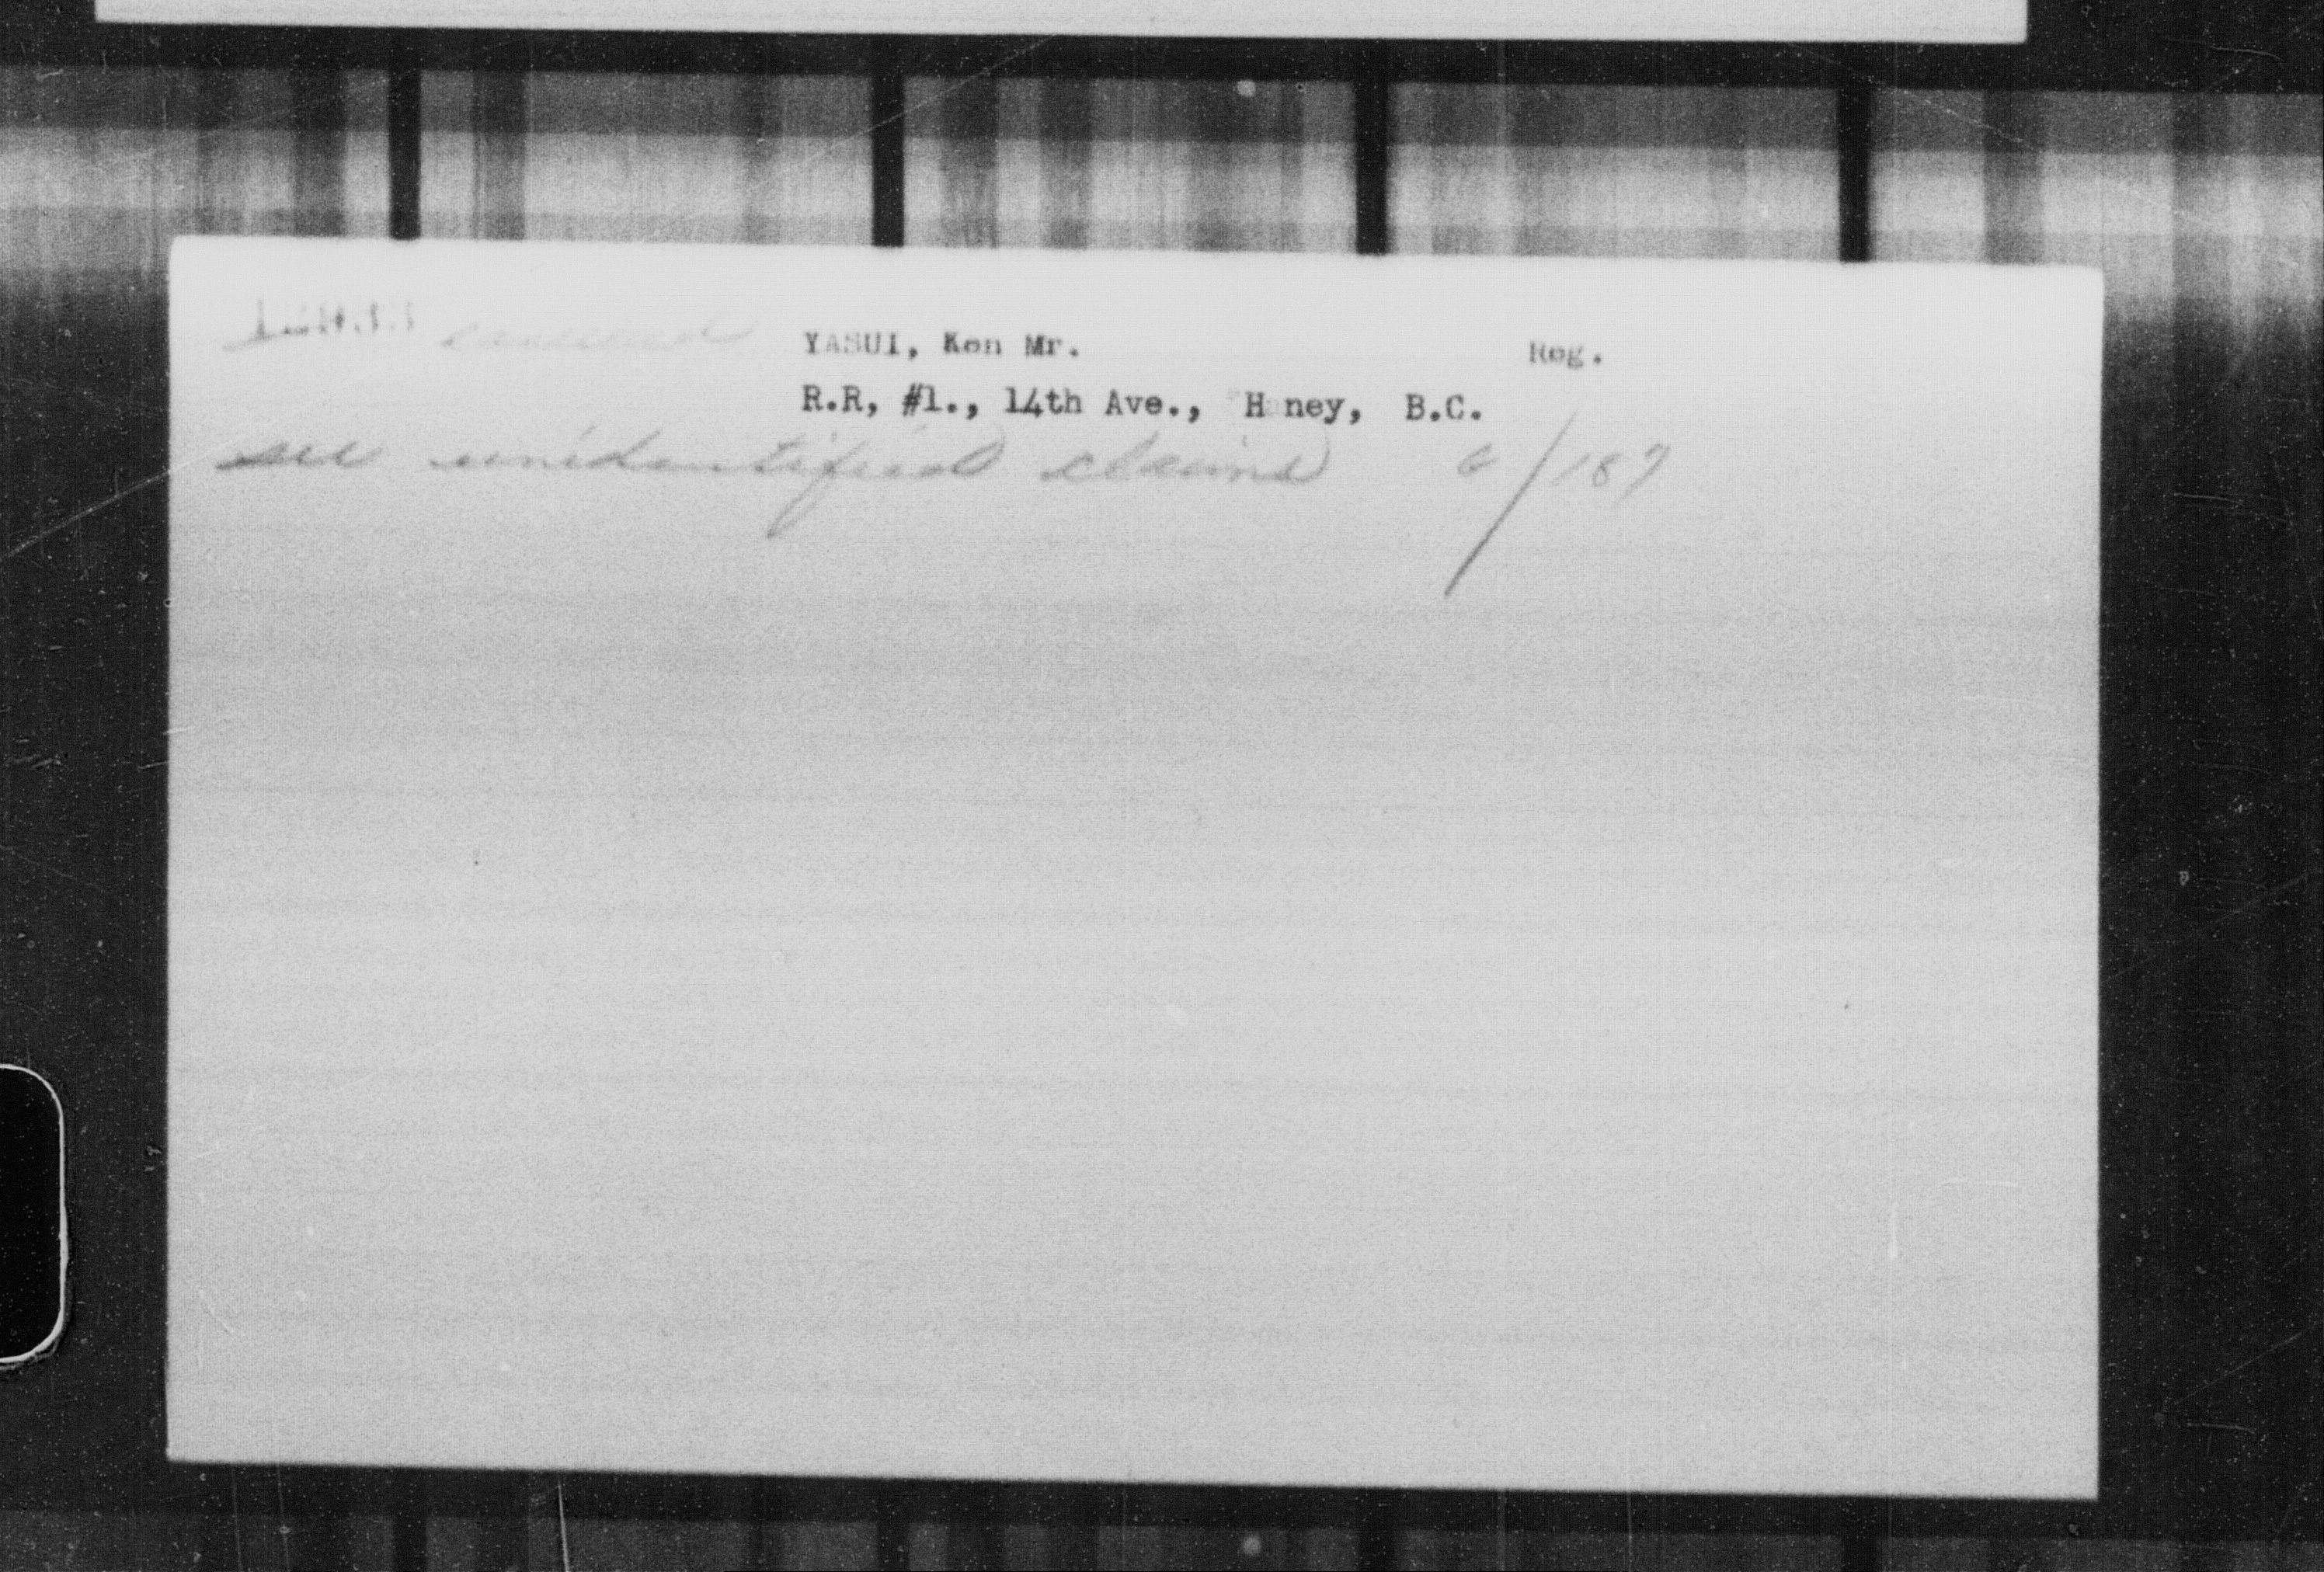 cancelled YASUI, Ken Mr. Reg.
R.R, #1., 14th Ave., Haney, B.C.
see unidentified claims 6/189